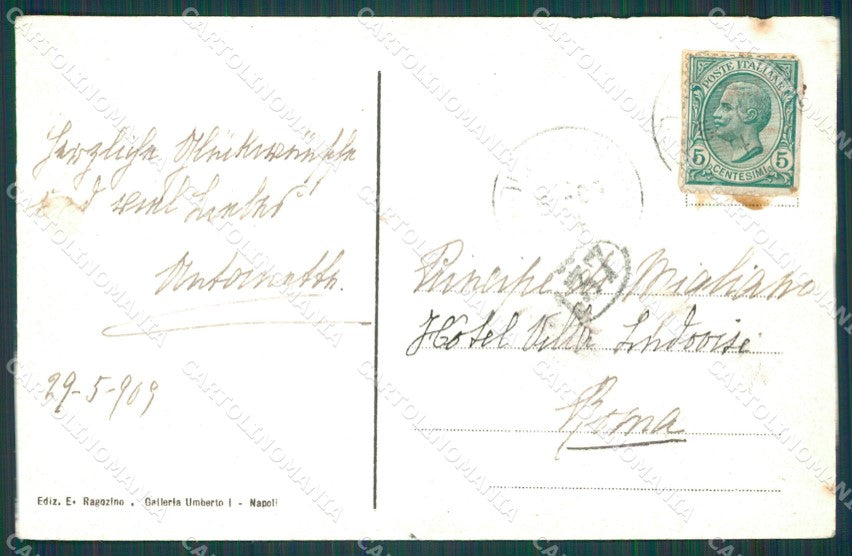 Herzliche Glückwünsche
und viel Liebes
Antoinette.
29-5-909
Ediz. E. Ragozino . Galleria Umberto I - Napoli
POSTE ITALIANE
5 5
CENTESIMI
Principe di Migliano
Hotel Villa Ludovisi
Roma
CARTOLINOMANIA